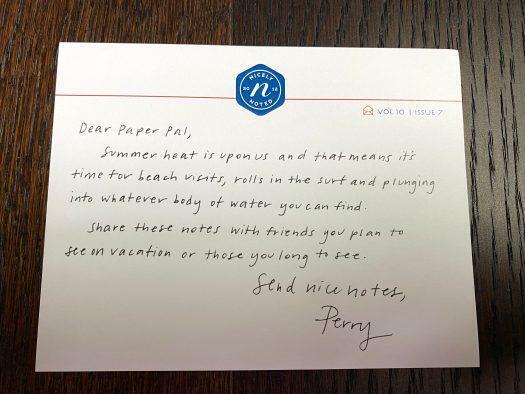 NICELY
20 n 12
NOTED
VOL 10 | ISSUE 7
Dear Paper Pal,
Summer heat is upon us and that means it's
time for beach visits, rolls in the surf and plunging
into whatever body of water you can find.
Share these notes with friends you plan to
see on vacation or those you long to see.
Send nice notes,
Perry